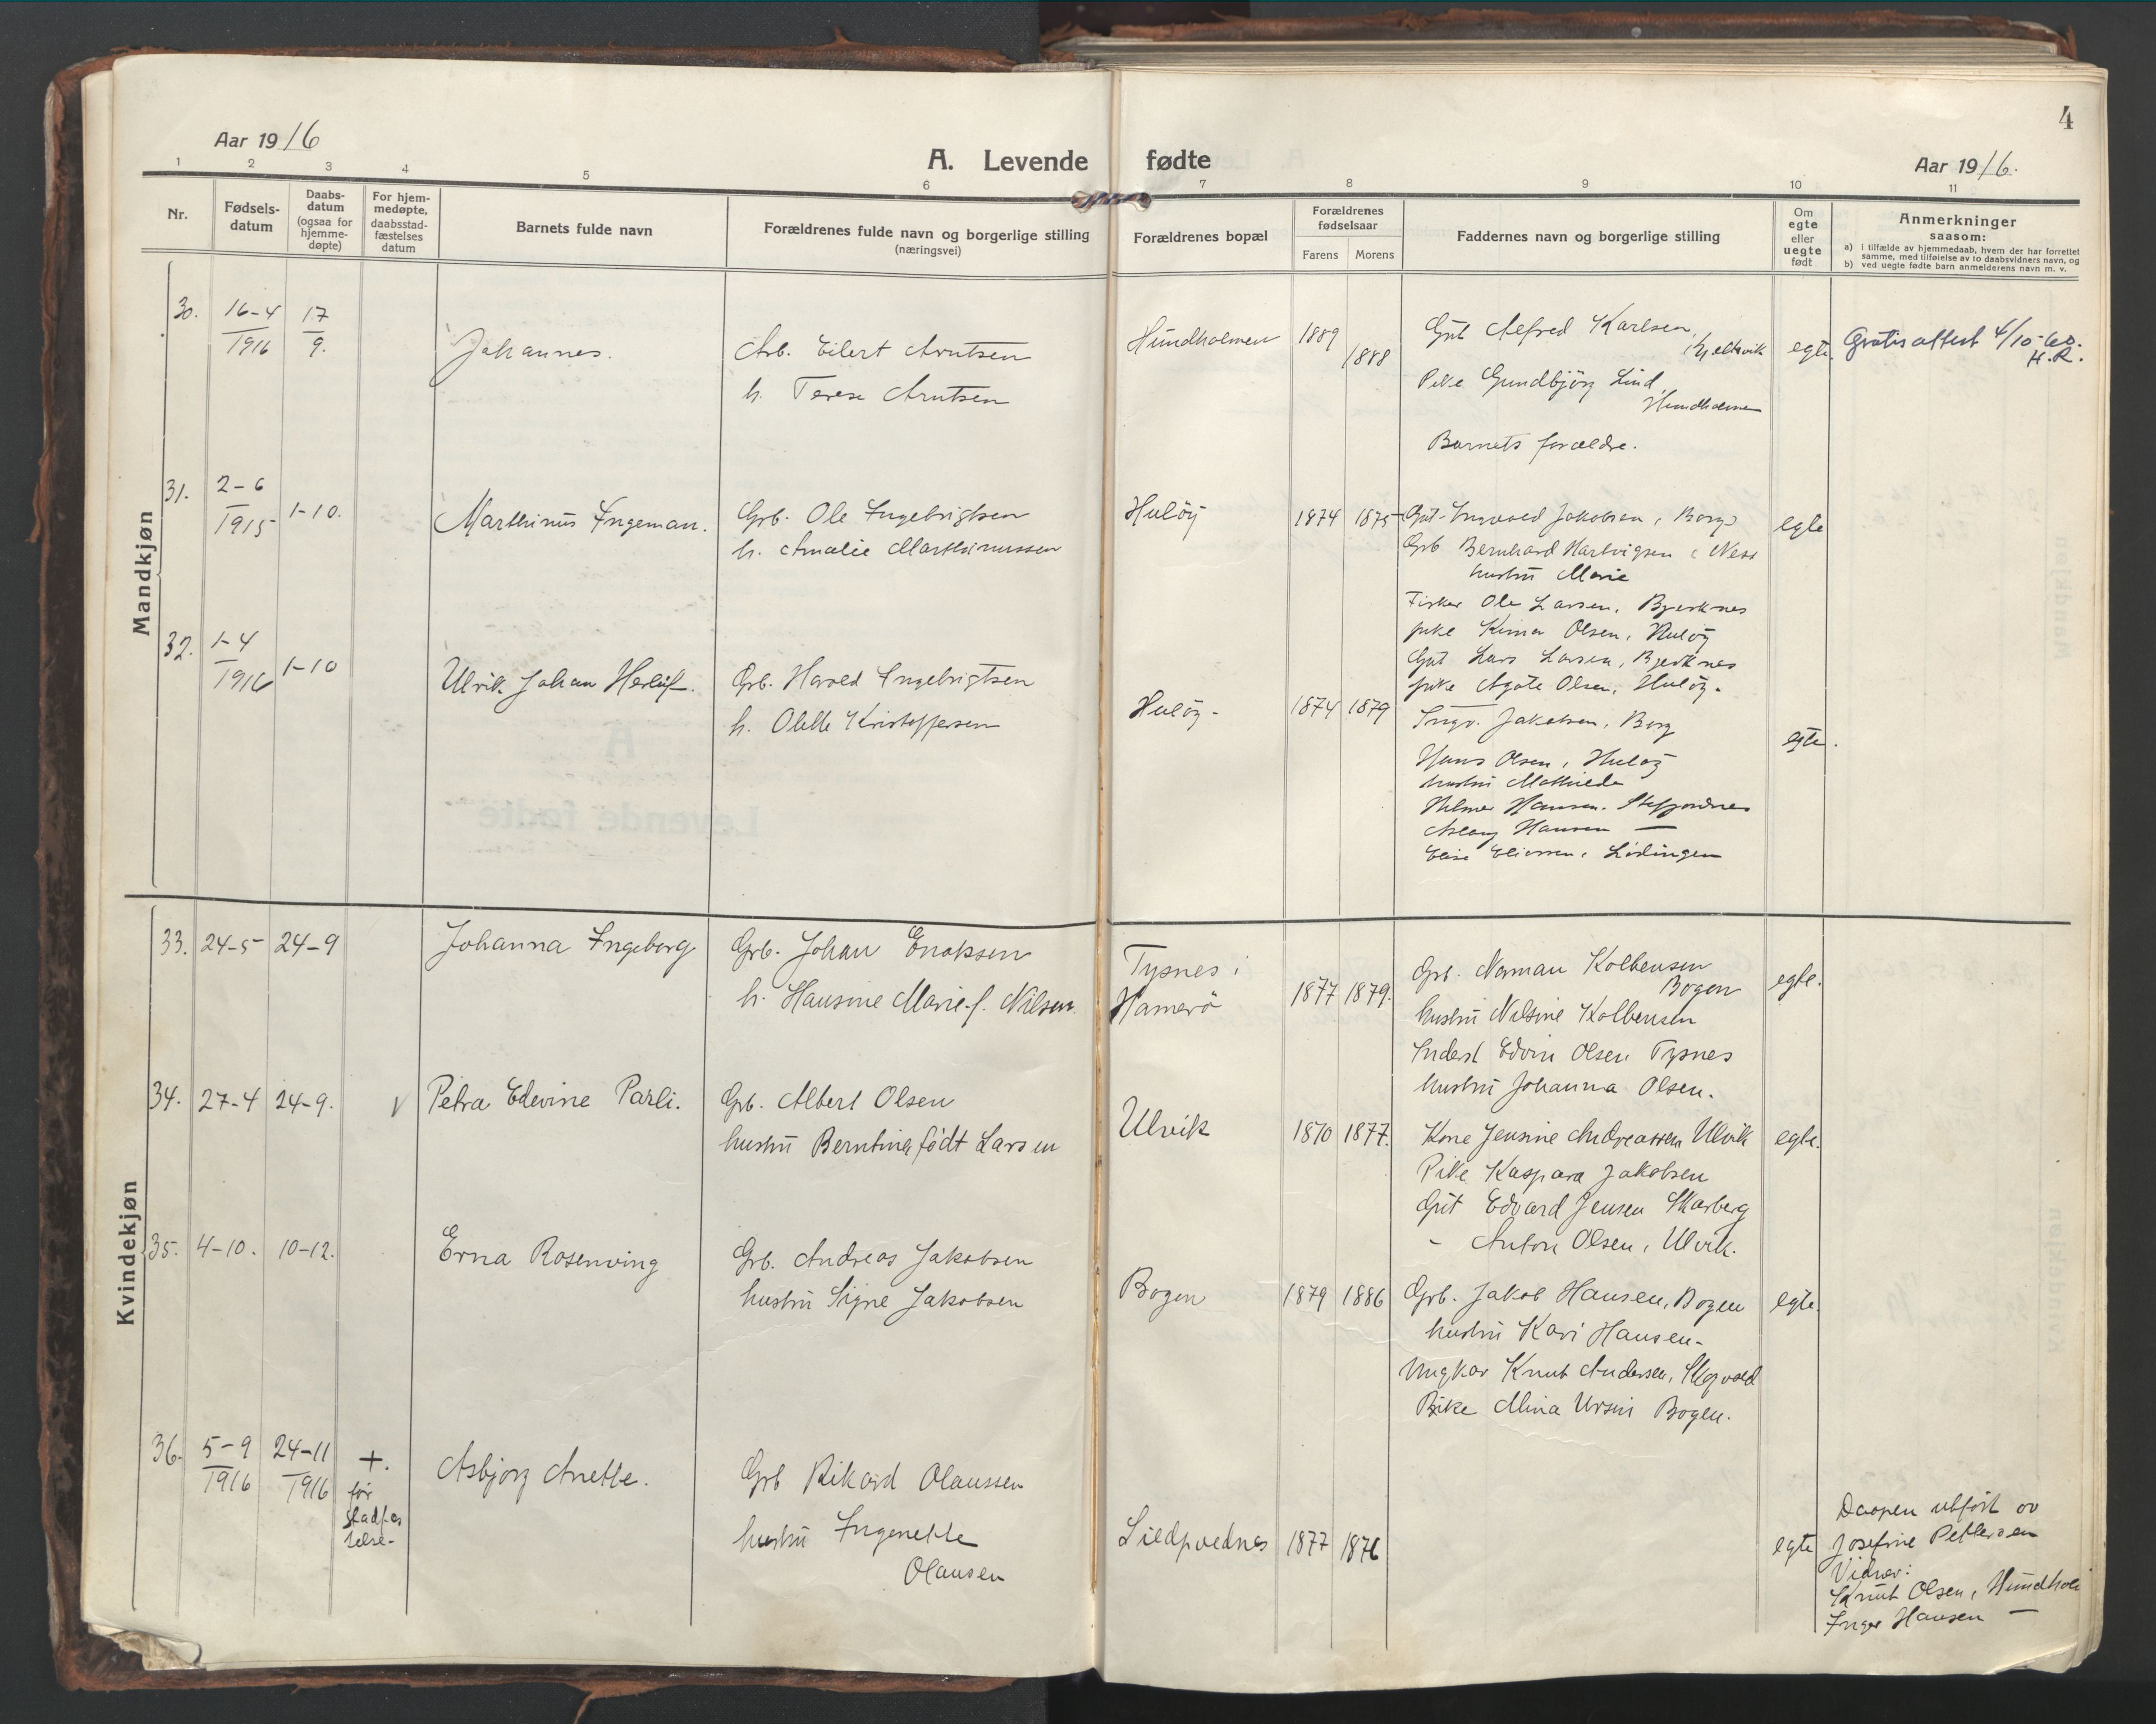 4
Aar 1916
A. Levende fødte
Aar 1916.
1 2 3 4 5 6 7 8 9 10 11
Nr.
Fødsels-
datum
Daabs-
datum
(ogsaa for
hjemme-
døpte)
For hjem-
medøpte,
daabsstad-
fæstelses
datum
Barnets fulde navn
Forældrenes fulde navn og borgerlige stilling
(næringsvei)
Forældrenes bopæl
Forældrenes
fødselsaar
Farens Morens
Faddernes navn og borgerlige stilling
Om
egte
eller
uegte
født
Anmerkninger
saasom:
a) I tilfælde av hjemmedaab, hvem der har forrettet
samme, med tilføielse av to daabsvidners navn, og
b) ved uegte fødte barn anmelderens navn m. v.
Mandkjøn
30. 16-4 17
1916 9.
Johannes.
Arb. Eilert Arntsen
h. Terese Arntsen
Hundholmen 1889 1888
Gut Alfred Karlsen,
Pike Gundbjörg Lind,
Hundholmen
Barnets forældre.
egte.
Gratis attest 4/10-60.
H.R.
31. 2-6
1915 1-10.
Marthinus Ingeman.
Grb. Ole Ingebrigtsen
h. Amalie Marthinussen
Hulöy 1874 1875
Gut Ingvald Jakobsen, Borg
Grb Bernhard Hartvigsen, Ness
hustru Marie
Fisker Ole Larsen, Bjerknes
pike Olsen, Hulöy
Gut Lars Larsen, Bjerknes
pike Agate Olsen, Hulöy.
egte
32. 1-4
1916 1-10
Ulrik Johan Herluf.
Grb. Harold Ingebrigtsen
h. Olette Kristoffersen
Hulöy- 1874 1879
Ingv. Jakobsen, Borg
Hans Olsen, Hulöy
hustru Mathilde
Hilmar Hansen.
Aslaug Hansen —
Elise Eliassen, Lödingen
egte.
Kvindekjøn
33. 24-5 24-9
Johanna Ingeborg
Grb. Johan Enoksen
h. Hansine Marie f. Nilsen
Tysnes i
Hamerö
1877 1879.
Grb. Norman Kolbensen
Bogen
hustru Nilsine Kolbensen
Inderst Edvin Olsen Tysnes
hustru Johanna Olsen.
egte.
34. 27-4 24-9. V
Petra Edevine Parli.
Grb. Albert Olsen
hustru Berntine født Larsen
Ulvik 1870 1877.
Kone Jensine Andreassen Ulvik
Pike Kaspara Jakobsen
Gut Edvard Jensen Skarberg
- Anton Olsen, Ulvik.
egte.
35. 4-10. 10-12.
Erna Rosenving
Grb. Andreas Jakobsen
hustru Signe Jakobsen
Bogen 1879 1886
Grb. Jakob Hansen, Bogen
hustru Kari Hansen-
Ungkar Knut Andersen,
Pike Alina Ursin Bogen.
egte.
36. 5-9 24-11 +.
1916 1916 før
stadfæs
telse-
Asbjorg Anette.
Grb Rikard Olaussen
hustru Ingenette
Olausen
1877 1876
egte
Daapen utført av
Josefine Pettersen
Vidner:
Knut Olsen, Hundhol
Inger Hansen —